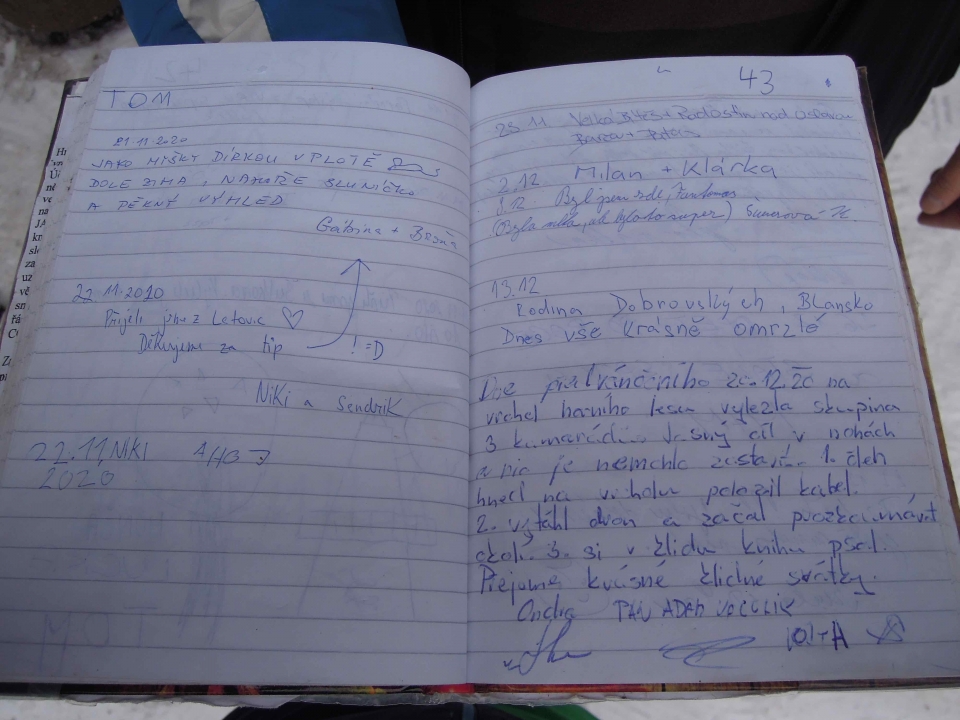 TOM
21.11.2020
JAKO MIŠKY DÍRKOU V PLOTĚ
DOLE ZIMA, NAHOŘE SLUNÍČKO
A PĚKNÝ VÝHLED
Gábina +
22.11.2010
Přijeli jsme z Letovic ♡
Děkujeme za tip ! =D
Niki a Sendrik
22.11 NIKI
2020
43
25.11 Velká Bíteš + Radostín nad Oslavou
2.12 Milan + Klárka
Byl jsem zde, Fantomas
(Byla mlha, ale bylo to super)
13.12
Rodina Dobrovských, Blansko
Dnes vše krásně omrzlé
Dne 20.12.20 na
vrchol horního lesa vylezla skupina
3 kamarádů. Jasný cíl v nohách
a nic je nemohlo zastavit. 1. člen
hned na vrcholu položil kabel.
2. vytáhl dron a začal prozkoumávat
okolí. 3. si v klidu knihu psal.
Přejeme krásné klidné svátky.
Ondra PAN ADAM